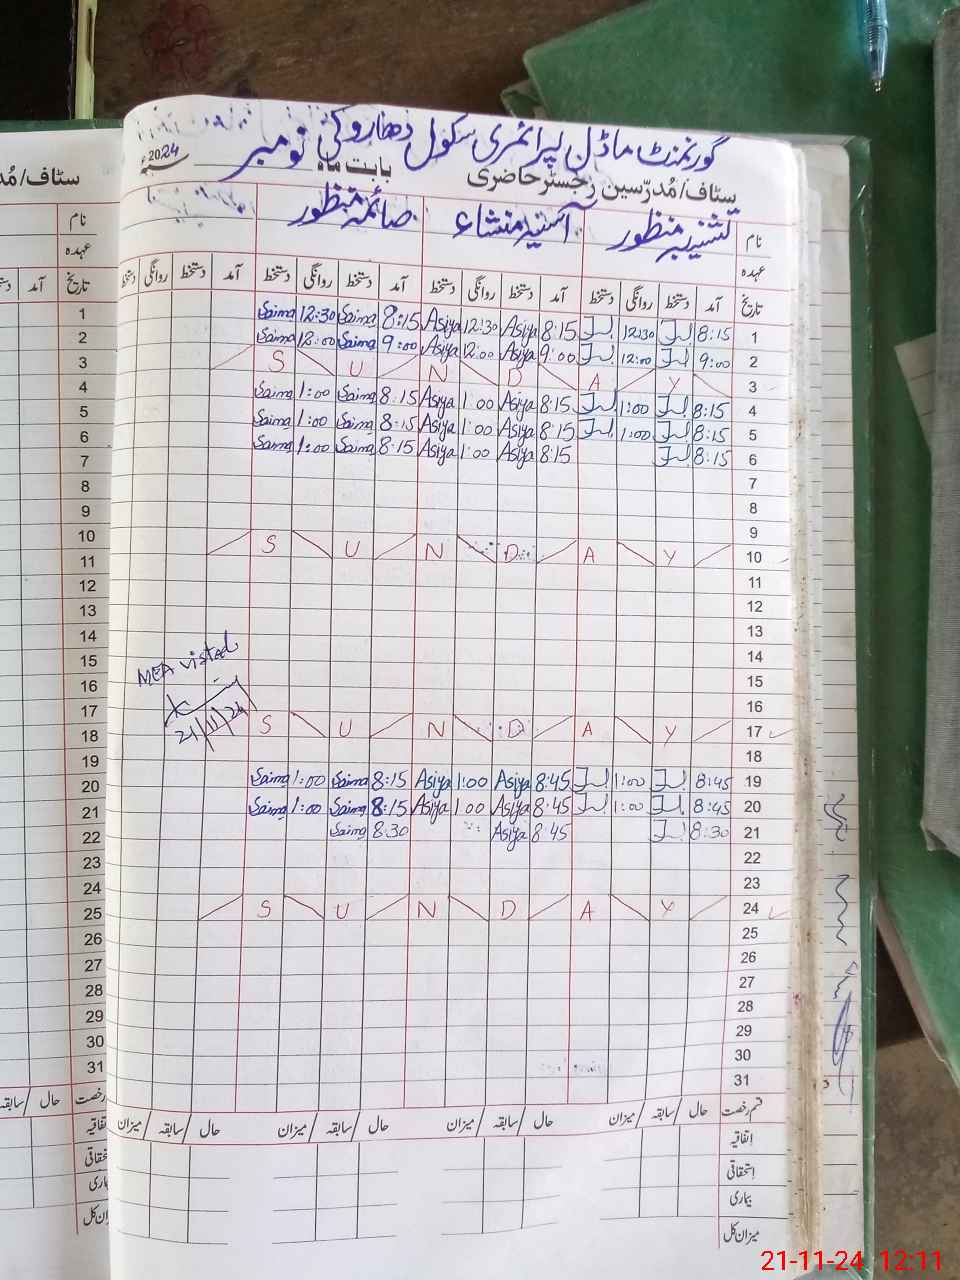 گورنمنٹ ماڈل پرائمری سکول دھاروکی نومبر
سٹاف/مُدرّسین رجسٹر حاضری بابت ماہ 2024ء
نام منظور آسیہ منشاء صائمہ منظور
عہدہ
تاریخ آمد دستخط روانگی دستخط آمد دستخط روانگی دستخط آمد دستخط روانگی دستخط آمد دستخط روانگی دستخط
1 8:15 12:30 8:15 Asiya 12:30 Asiya 8:15 Saima 12:30 Saima
2 9:00 12:00 9:00 Asiya 12:00 Asiya 9:00 Saima 12:00 Saima
3 S U N D A Y
4 8:15 1:00 8:15 Asiya 1:00 Asiya 8:15 Saima 1:00 Saima
5 8:15 1:00 8:15 Asiya 1:00 Asiya 8:15 Saima 1:00 Saima
6 8:15 8:15 Asiya 1:00 Asiya 8:15 Saima 1:00 Saima
7
8
9
10 S U N D A Y
11
12
13
14
15
16
17 S U N D A Y
18
19 8:45 1:00 8:45 Asiya 1:00 Asiya 8:15 Saima 1:00 Saima
20 8:45 1:00 8:45 Asiya 1:00 Asiya 8:15 Saima 1:00 Saima
21 8:30 8:45 Asiya 8:30 Saima
22
23
24 S U N D A Y
25
26
27
28
29
30
31
MEA visted
21/11/24
قسم رخصت حال / سابقہ / میزان حال / سابقہ / میزان حال / سابقہ / میزان حال / سابقہ / میزان
اتفاقیہ
استحقاقی
بیماری
میزان کل
سٹاف/مُد
نام
عہدہ
تاریخ آمد
1
2
3
4
5
6
7
8
9
10
11
12
13
14
15
16
17
18
19
20
21
22
23
24
25
26
27
28
29
30
31
رخصت حال / سابقہ
21-11-24 12:11